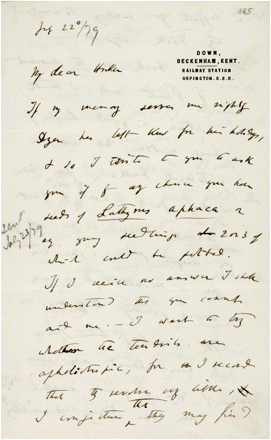 185
July 22d/79
DOWN,
BECKENHAM, KENT.
RAILWAY STATION
ORPINGTON. S.E.R.
My dear Hooker
If my memory serves me rightly
Dyer has left Kew for his holidays,
& so I write to you to ask
you if by any chance you have
seeds of Lathyrus aphaca or
any young seedlings 2 or 3 of
which could be potted.
sent
July 23/79
If I receive no answer I shall
understand that you cannot
aid me. — I want to try
whether the tendrils are
apheliotropic, for as I record
that they revolve very little,
I conjecture that they may find